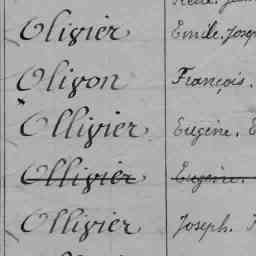 Olivier Emile. Josep
Olivon François.
Ollivier Eugène. E
Ollivier Eugène.
Ollivier Joseph.